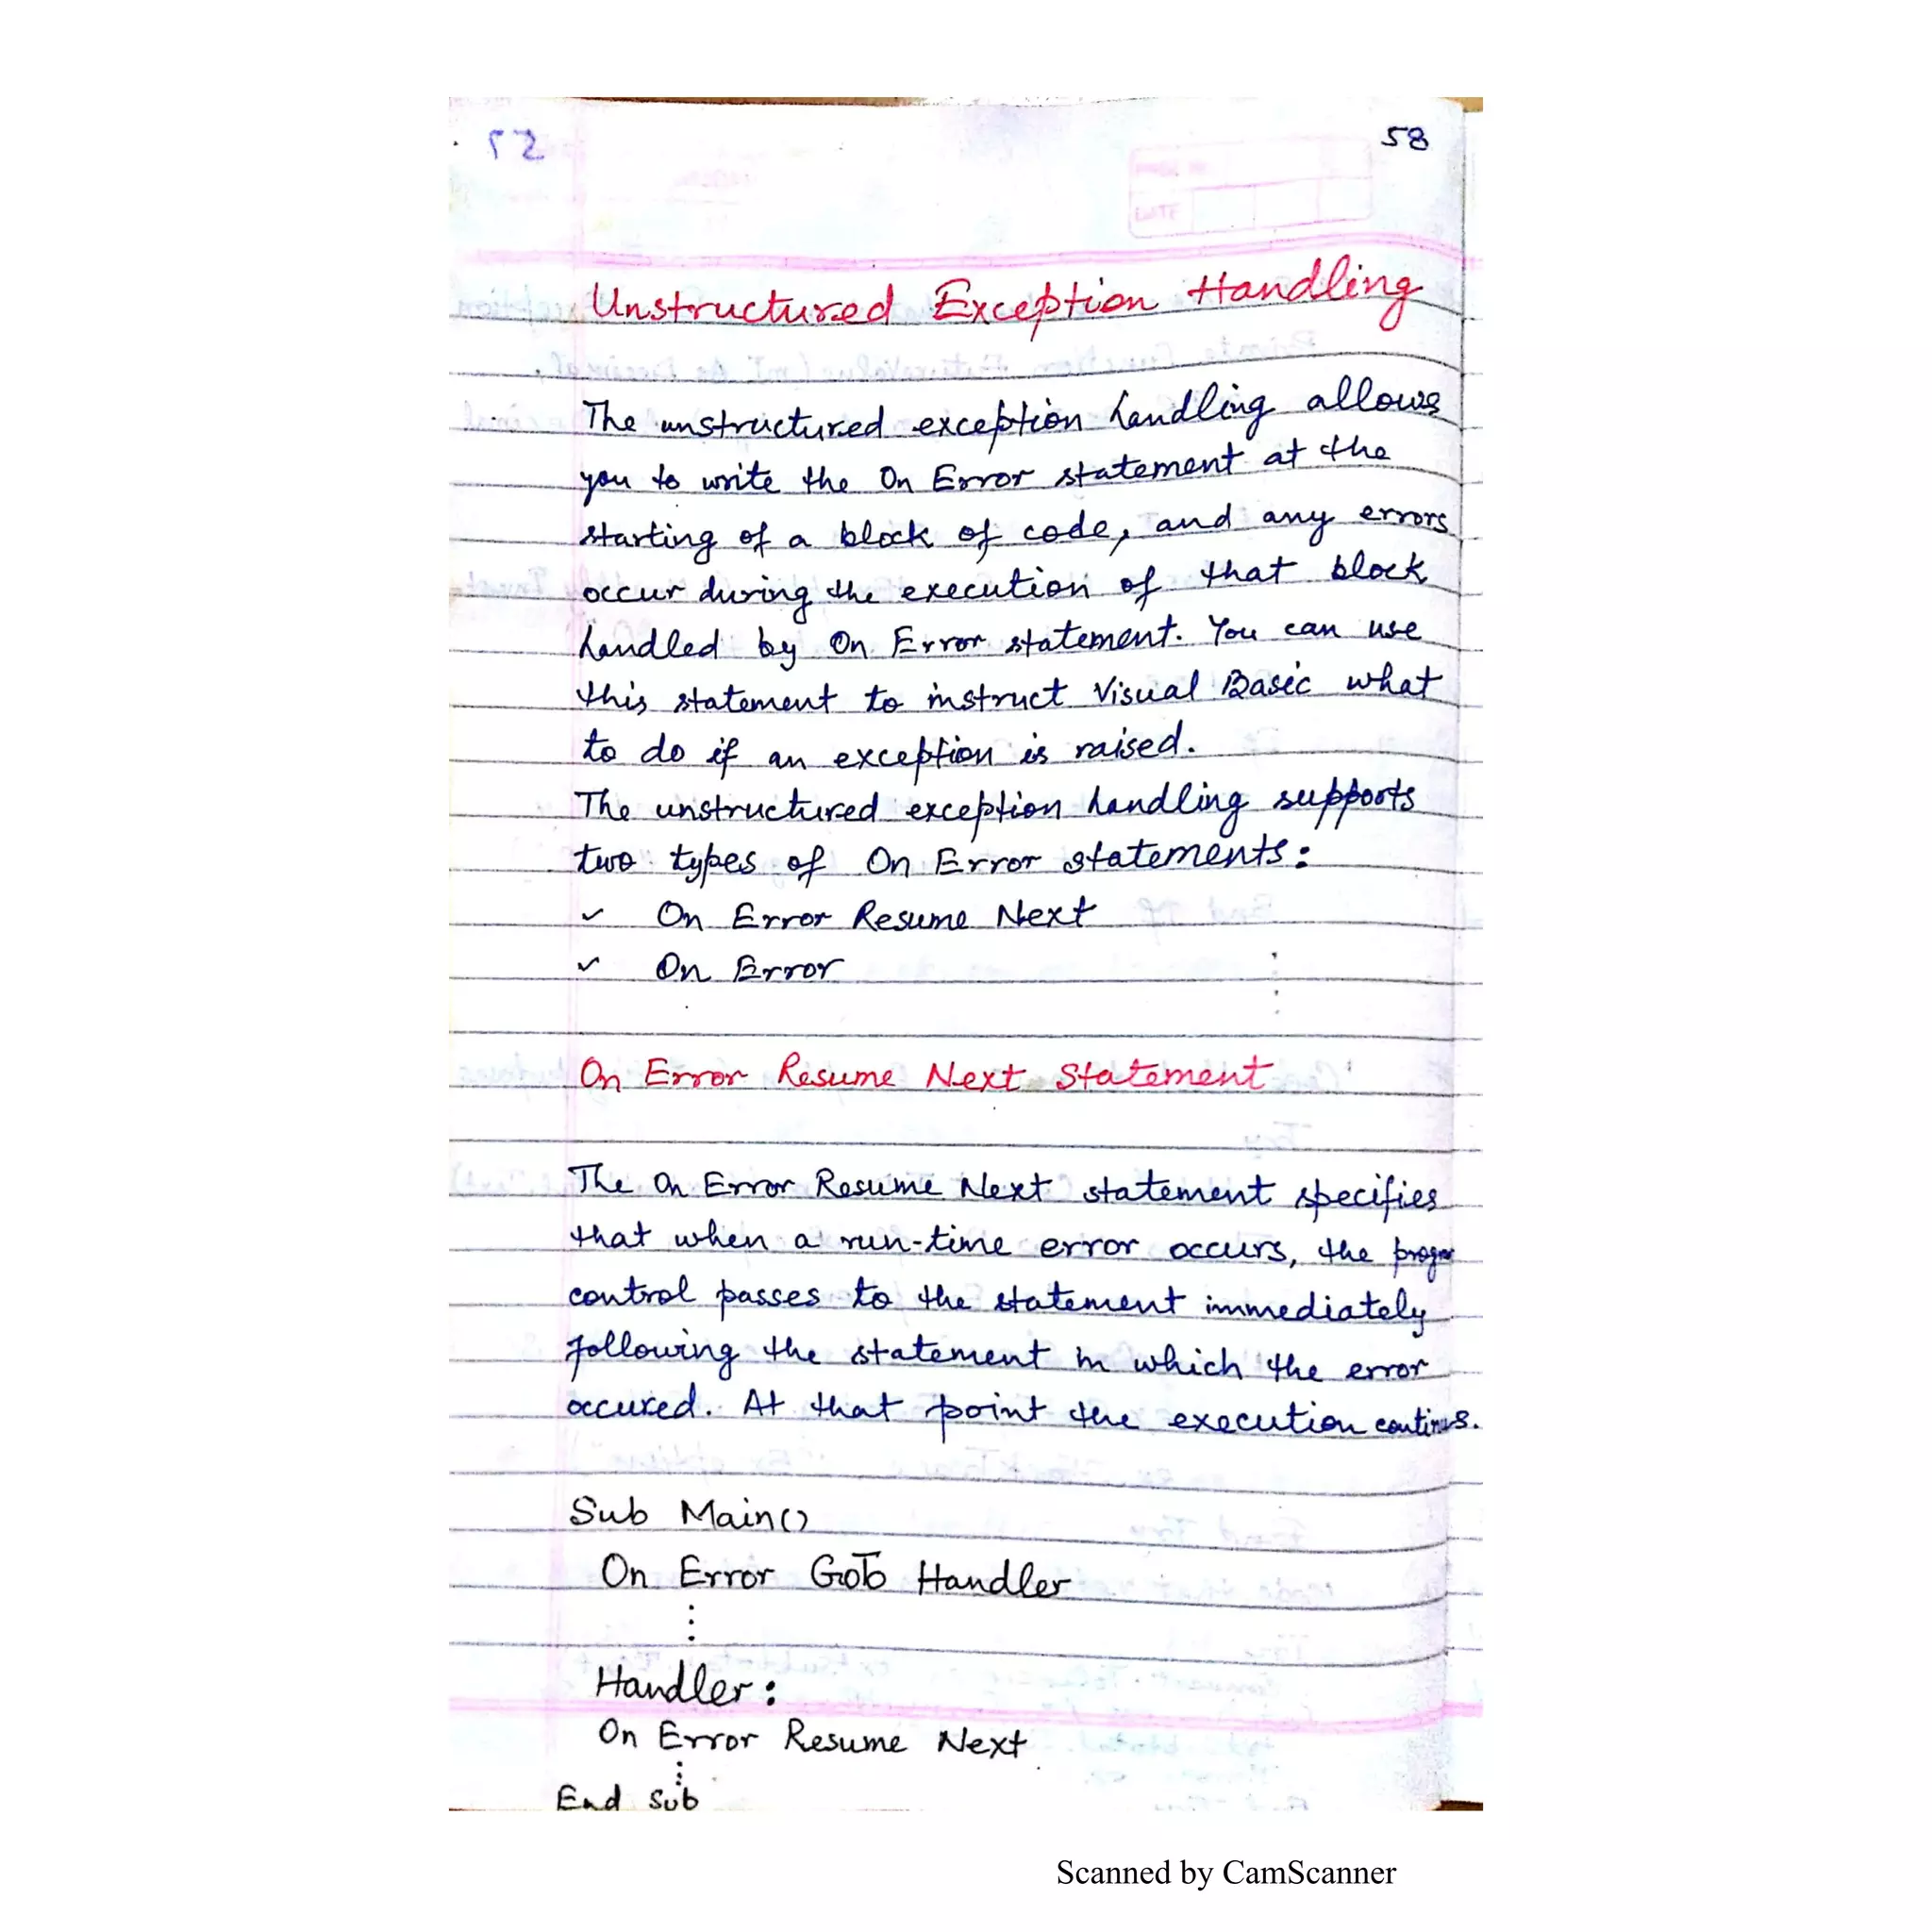 58
Unstructured Exception Handling
The unstructured exception handling allows
you to write the On Error statement at the
starting of a block of code, and any errors
occur during the execution of that block
handled by On Error statement. You can use
this statement to instruct Visual Basic what
to do if an exception is raised.
The unstructured exception handling supports
two types of On Error statements:
✓ On Error Resume Next
✓ On Error
On Error Resume Next Statement
The On Error Resume Next statement specifies
that when a run-time error occurs, the
control passes to the statement immediately
following the statement in which the error
occured. At that point the execution continus.
Sub Main()
On Error GoTo Handler
⋮
Handler:
On Error Resume Next
⋮
End Sub
Scanned by CamScanner